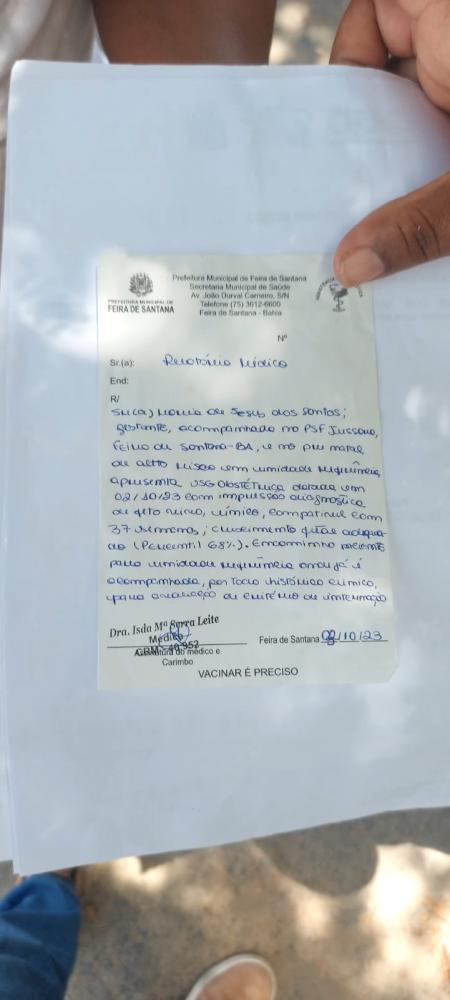 Prefeitura Municipal de Feira de Santana
Secretaria Municipal de Saúde
Av. João Durval Carneiro, S/N
Telefone (75) 3612-6600
Feira de Santana - Bahia
PREFEITURA MUNICIPAL DE
FEIRA DE SANTANA
Nº
Sr.(a): Relatório Médico
End:
R/
Sr(a) Maria de Jesus dos Santos;
gestante, acompanhada no PSF Jussara,
Feira de Santana-BA, e no pré natal
de alto risco em unidade referência,
apresenta USG Obstétrica datada em
02/10/23 com impressão diagnóstica
de feto único, cômico, compatível com
37 semanas; crescimento fetal adequa-
do (Percentil 68%). Encaminho paciente
para unidade referência onde já é
acompanhada, por todo histórico clínico,
para avaliação de critério de internação
Dra. Isda Mª Serra Leite
Médico
CRM: 40.952
Assinatura do médico e
Carimbo
Feira de Santana 02/10/23
VACINAR É PRECISO